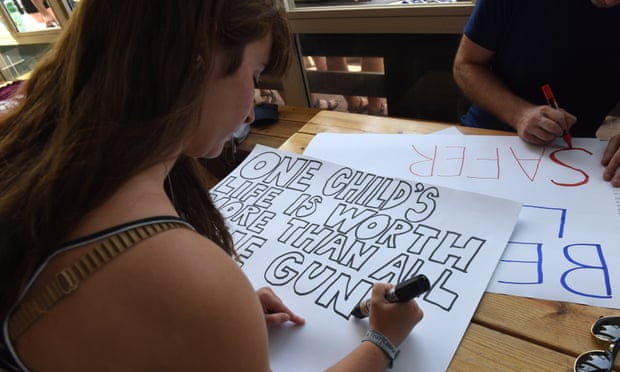 ONE CHILD'S
LIFE IS WORTH
MORE THAN ALL
THE GUN
SAFER S